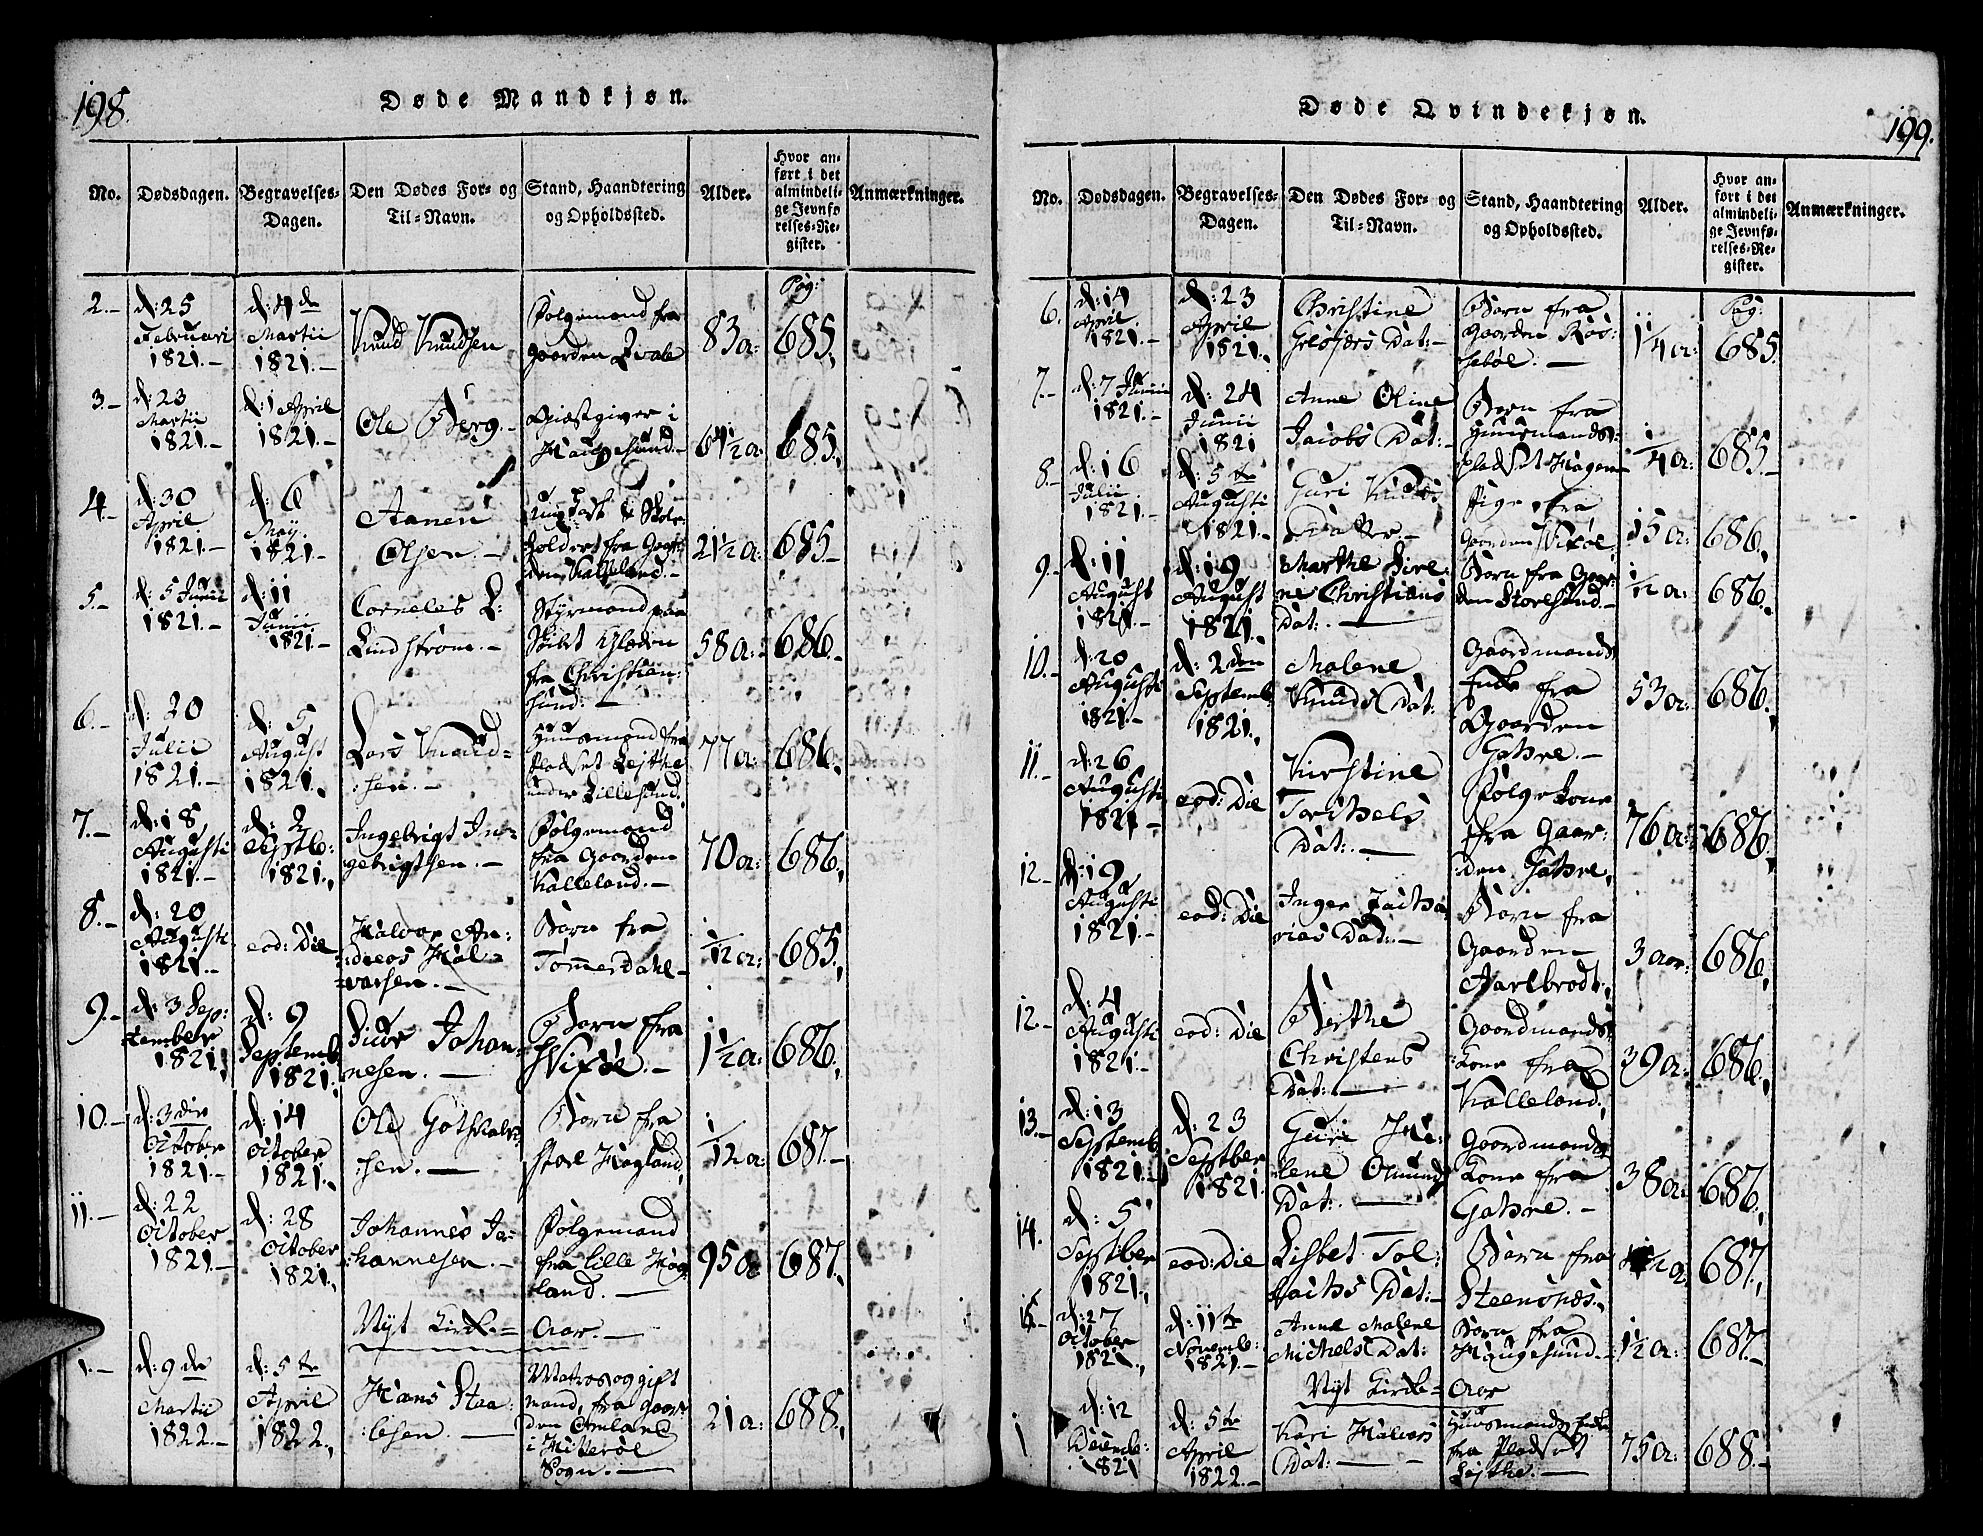 198.
Døde Mandkjøn.
No.
Dødsdagen.
Begravelses-
Dagen.
Den Dødes For- og
Til-Navn.
Stand, Haandtering
og Opholdssted.
Alder.
Hvor an-
ført i det
almindeli-
ge Jevnfø-
relses-Re-
gister.
Anmærkninger.
Pag:
2.-
d: 25
Februari
1821.-
d: 4de
Martii
1821.-
Knud Knudsen
Følgemand fra
Gaarden Qvale
83 a:
685.
3.-
d: 23
Martii
1821.-
d: 1 April
1821.-
Ole Berg.-
Giæstgiver i
Haugesund.-
64½ a:
685.
4.-
d: 30
April
1821.-
d: 6
May.
1821.-
Aanen
Olsen.-
holders fra Gaar-
den Kalleland.-
21½ a:
685.-
5.-
d: 5 Junii
1821.-
d: 11
Junii
1821.-
Corneles L:
Lindstrøm.-
Styrmand paa
Skibet Haabin
fra Christian-
sund:-
58 a:
686.-
6.-
d: 20
Julii
1821.-
d: 5
August
1821.
Lars Knud-
sen.-
Huusmand fra
Pladset Lejthe
under Lillesund.
77 a:
686.
7.-
d: 18
Augusti
1821.-
d: 2
Septb:
1821.
Ingebrigt In-
gebrigtsen.-
Følgemand
fra Gaarden
Kalleland.-
70 a:
686.
8.-
d: 20
Augusti
1821.-
eod: Die
Haldor An-
dreas Hal-
varsen.-
Barn fra
Tømmerdahl-
1/12 a:
685.
9.-
d: 3 Sep-
tember
1821.
d: 9
Septemb
1821.
Siver Johan-
nesen.-
Barn fra
Vixøe.-
1½ a:
686.
10.-
d: 3die
October
1821.-
d: 14
October
1821.
Ole Gothskalk-
sen.-
Barn fra
store Hagland.
1/12 a:
687.-
11.-
d: 22
October
1821.-
d: 28
October
1821.
Johannes Jo-
hannesen.-
Følgemand
fra lille Hag-
land.-
95 a:
687.
Nyt Kirke-
Aar.-
1.-
d: 9de
Martii
1822.-
d: 5te
April
1822.
Hans Staa-
lesen.-
Matros og gift
mand, fra Gaar-
den Amland
i Hitterøe
Sogn.-
21 a:
688.
199.
Døde Qvindekjøn.
No.
Dødsdagen.
Begravelses-
Dagen.
Den Dødes For- og
Til-Navn.
Stand, Haandtering
og Opholdssted.
Alder.
Hvor an-
ført i det
almindeli-
ge Jevnfø-
relses-Re-
gister.
Anmærkninger.
Pag:
6.
d: 14
April
1821.-
d: 23
April
1821.
Christine
Gresjers Dat:-
Barn fra
Gaarden Røs-
sebøe.-
1/4 a:
685.
7.-
d: 7 Junii
1821.-
d: 24
Junii
1821
Anne Oline
Jacobs Dat:-
Barn fra
Huusmands-
pladset Hagen-
1/4 a:
685.-
8.-
d: 16
Julii
1821.-
d: 5te
Augusti
1821.
Guri Knuds
Datter-
Pige fra
Gaarden Vixøe.
15 a:
686.
9.-
d: 11
August
1821.-
d: 19
August
1821.
Marthe Sire-
ne Christians
Dat:-
Barn fra Gaar-
den Storesund.-
1/12 a:
686.
10.-
d: 20
Augusti
1821.-
d: 2den
Septemb
1821.
Malene
Knuds Dat:
Gaardmands
Enke fra
Gaarden
Gahre.-
53 a:
686.
11.-
d: 26
Augusti
1821.-
eod: Die
Kirstine
Torchels
Dat:-
Følgekone
fra Gaar-
den Gahre.
76 a:
686.
12.-
d: 19
Augusti
1821.-
eod: Die
Inger Zacha-
rias Dat:-
Barn fra
Gaarden
Aarlbrodt.
3 aar:
686.
12.-
d: 4
Augusti
1821.-
eod: Die
Berthe
Christens
Dat:-
Gaardmands
Kone fra
Kalleland.
39 a:
686.
13.-
d: 13
Septemb
1821.-
d: 23
Septber
1821.
Guri He-
lene Omunds
Dat:-
Gaardmands
Kone fra
Gahre.-
38 a:
686.
14.
d: 5
Septber
1821.
eod: Die
Lisbet Tol-
lachs Dat:-
Barn fra
Steensnæs.
687.
15.-
d: 27
October
1821.
d: 11te
Novemb:
1821.-
Anne Malene
Michels Dat:
Barn fra
Haugesund.-
1½ a:
687.-
Nyt Kirke-
Aar
1
d: 12
Decemb:
1821
d: 5te
April
1822.-
Kari Halvors
Dat:-
Huusmands Enke
fra Pladset
Lejthe.-
75 a:
688.-